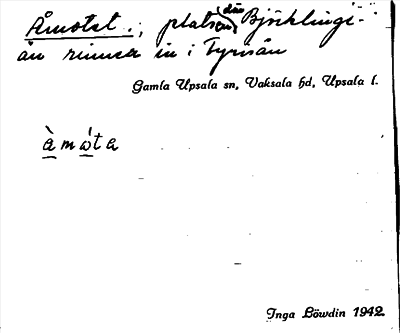 Åmotet.; platsen, där Björklinge-
ån rinner in i Fyrisån
Gamla Upsala sn, Vaksala hd, Upsala l.
à m ώ t a
Inga Löwdin 1942.